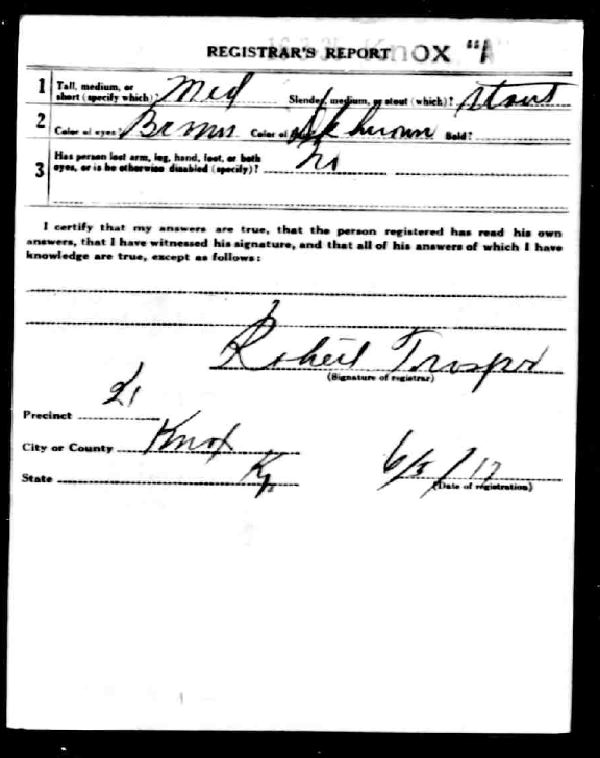 REGISTRAR'S REPORT KNOX "A"
1 Tall, medium, or short (specify which)? Med Slender, medium, or stout (which)? Stout
2 Color of eyes? Brown Color of Dk brown Bald?
3 Has person lost arm, leg, hand, foot, or both
eyes, or is he otherwise disabled (specify)? No
I certify that my answers are true, that the person registered has read his own
answers, that I have witnessed his signature, and that all of his answers of which I have
knowledge are true, except as follows:
Robert Trosper
(Signature of registrar)
Precinct
City or County Knox
State Ky.
6/5/17
(Date of registration)